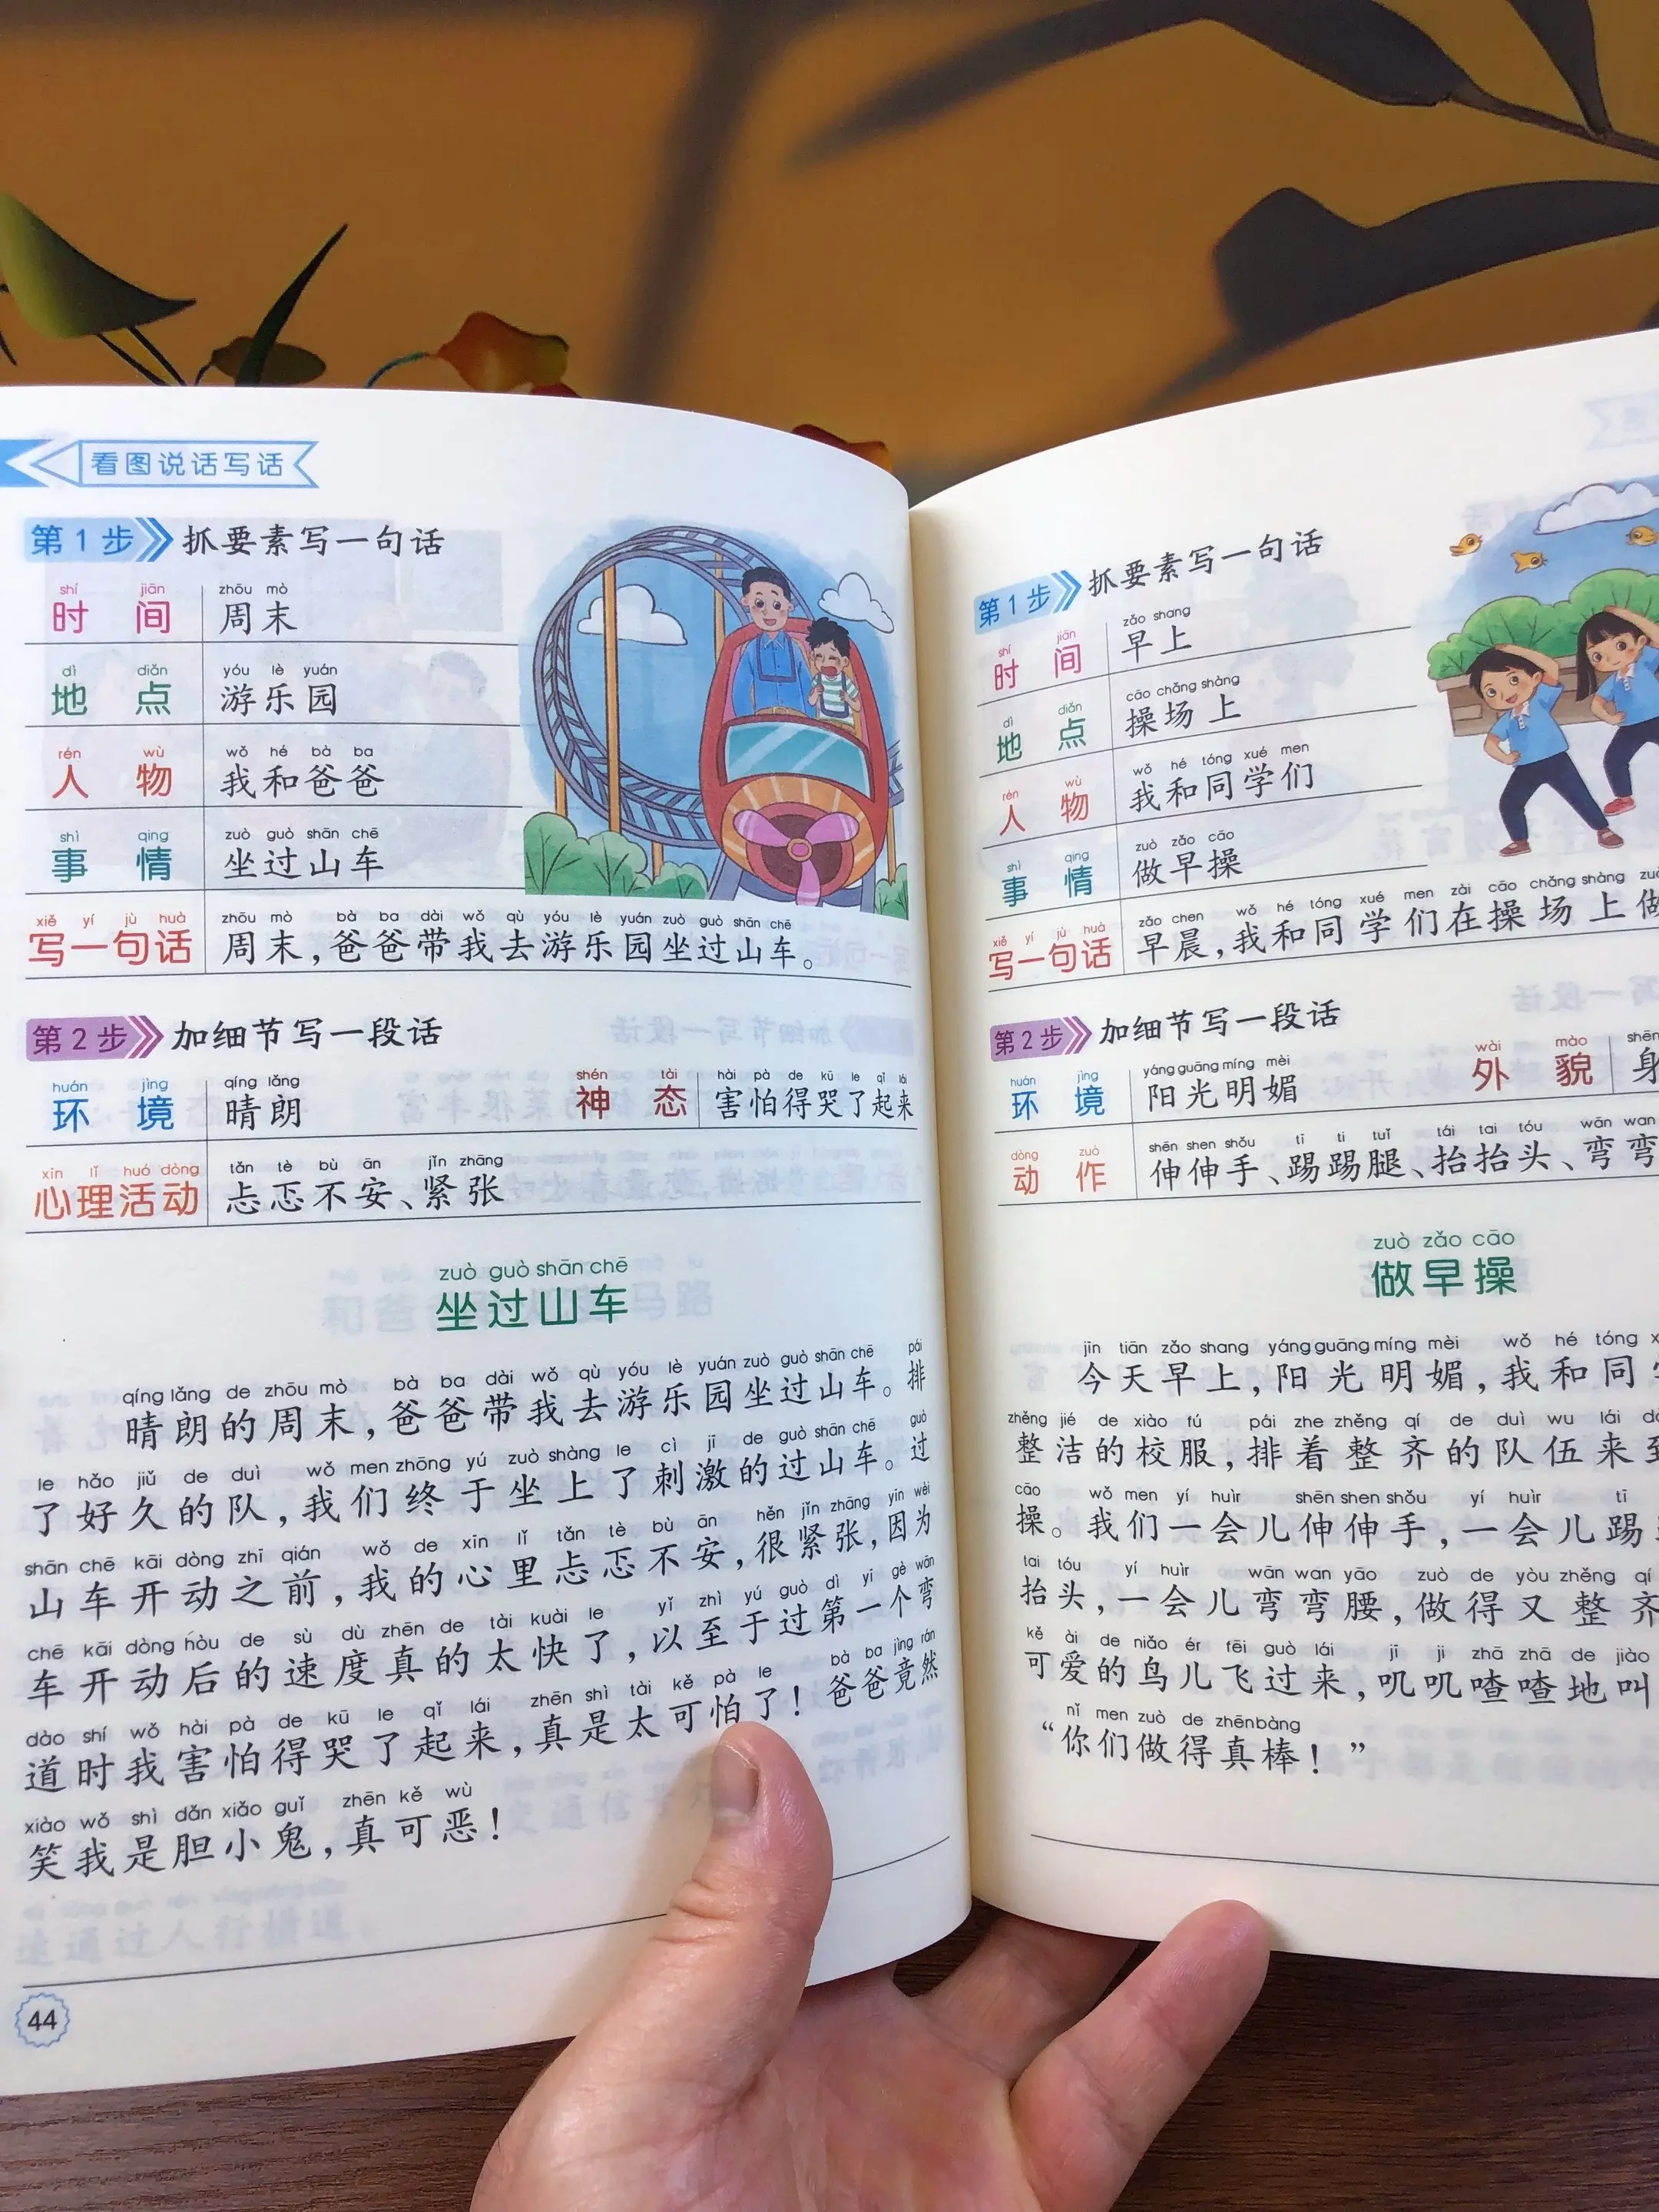 看图说话写话
第1步 抓要素写一句话
shí jiān zhōu mò
时间 周末
dì diǎn yóu lè yuán
地点 游乐园
rén wù wǒ hé bà ba
人物 我和爸爸
shì qing zuò guò shān chē
事情 坐过山车
xiě yí jù huà zhōu mò bà ba dài wǒ qù yóu lè yuán zuò guò shān chē
写一句话 周末，爸爸带我去游乐园坐过山车。
第2步 加细节写一段话
huán jìng qíng lǎng shén tài hài pà de kū le qǐ lái
环境 晴朗 神态 害怕得哭了起来
xīn lǐ huó dòng tǎn tè bù ān jǐn zhāng
心理活动 忐忑不安、紧张
zuò guò shān chē
坐过山车
qíng lǎng de zhōu mò bà ba dài wǒ qù yóu lè yuán zuò guò shān chē pái
晴朗的周末，爸爸带我去游乐园坐过山车。排
le hǎo jiǔ de duì wǒ men zhōng yú zuò shàng le cì jī de guò shān chē guò
了好久的队，我们终于坐上了刺激的过山车。过
shān chē kāi dòng zhī qián wǒ de xīn lǐ tǎn tè bù ān hěn jǐn zhāng yīn wèi
山车开动之前，我的心里忐忑不安，很紧张，因为
chē kāi dòng hòu de sù dù zhēn de tài kuài le yǐ zhì yú guò dì yī gè wān
车开动后的速度真的太快了，以至于过第一个弯
dào shí wǒ hài pà de kū le qǐ lái zhēn shì tài kě pà le bà ba jìng rán
道时我害怕得哭了起来，真是太可怕了！爸爸竟然
xiào wǒ shì dǎn xiǎo guǐ zhēn kě wù
笑我是胆小鬼，真可恶！
44
第1步 抓要素写一句话
shí jiān zǎo shang
时间 早上
dì diǎn cāo chǎng shàng
地点 操场上
rén wù wǒ hé tóng xué men
人物 我和同学们
shì qing zuò zǎo cāo
事情 做早操
xiě yí jù huà zǎo chen wǒ hé tóng xué men zài cāo chǎng shàng
写一句话 早晨，我和同学们在操场上做
第2步 加细节写一段话
huán jìng yáng guāng míng mèi wài mào shēn
环境 阳光明媚 外貌 身
dòng zuò shēn shen shǒu tī ti tuǐ tái tai tóu wān wan
动作 伸伸手、踢踢腿、抬抬头、弯弯
zuò zǎo cāo
做早操
jīn tiān zǎo shang yáng guāng míng mèi wǒ hé tóng
今天早上，阳光明媚，我和同
zhěng jié de xiào fú pái zhe zhěng qí de duì wu lái
整洁的校服，排着整齐的队伍来到
cāo wǒ men yí huìr shēn shen shǒu yí huìr tī
操。我们一会儿伸伸手，一会儿踢
tai tóu yí huìr wān wan yāo zuò de yòu zhěng qí
抬头，一会儿弯弯腰，做得又整齐
kě ài de niǎo ér fēi guò lái jī ji zhā zhā de jiào
可爱的鸟儿飞过来，叽叽喳喳地叫
nǐ men zuò de zhēn bàng
“你们做得真棒！”